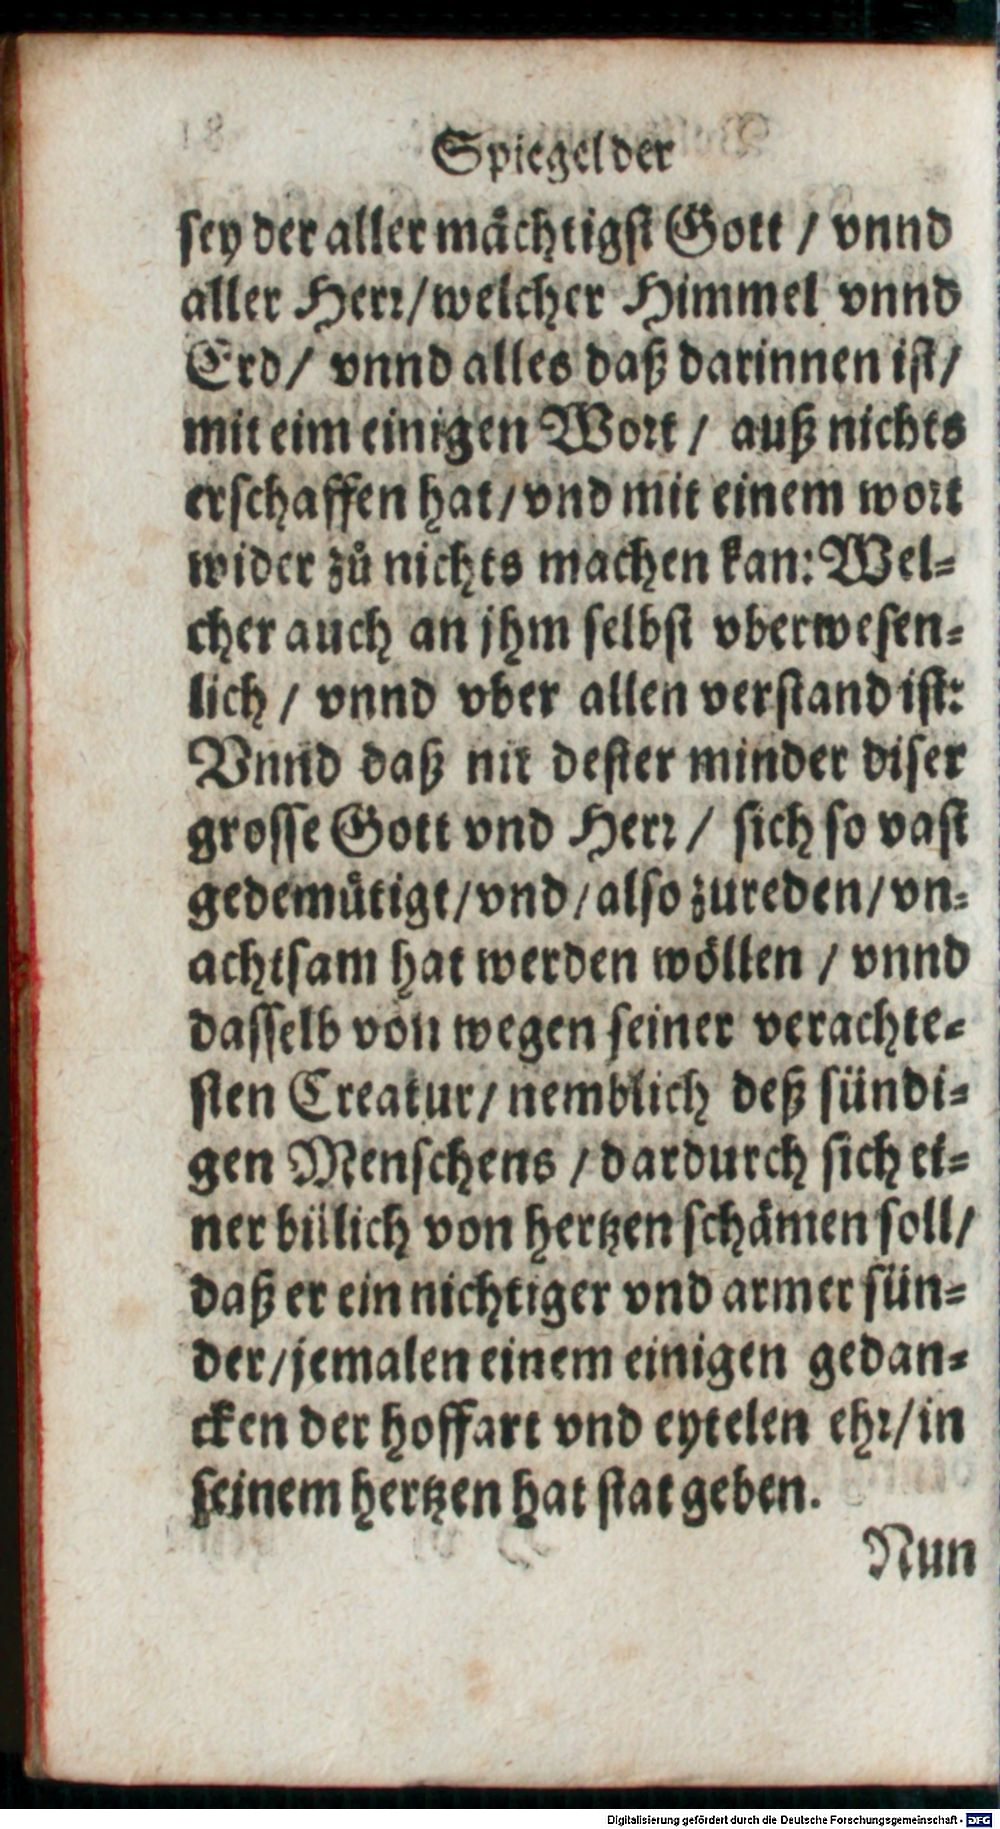 Spiegel der
sey der aller mächtigst Gott / vnnd
aller Herr/welcher Himmel vnnd
Erd/ vnnd alles daß darinnen ist/
mit eim einigen Wort / auß nichts
erschaffen hat/vnd mit einem wort
wider zů nichts machen kan: Wel-
cher auch an jhm selbst vberwesen-
lich / vnnd vber allen verstand ist:
Vnnd daß nit dester minder diser
grosse Gott vnd Herr / sich so vast
gedemütigt/vnd/also zureden/vn-
achtsam hat werden wöllen / vnnd
dasselb von wegen seiner verachte-
sten Creatur/nemblich deß sündi-
gen Menschens /dardurch sich ei-
ner billich von hertzen schämen soll/
daß er ein nichtiger vnd armer sün-
der/jemalen einem einigen gedan-
cken der hoffart vnd eytelen ehr/in
seinem hertzen hat stat geben.
Nun
Digitalisierung gefördert durch die Deutsche Forschungsgemeinschaft - DFG